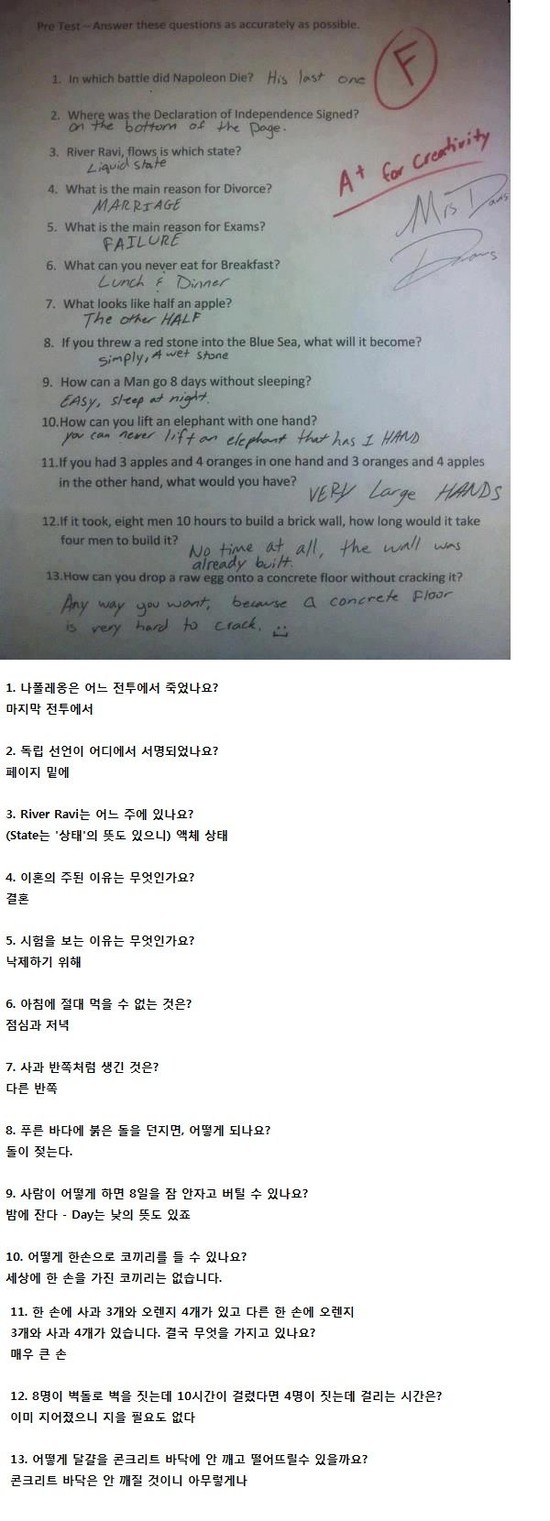 Pre Test – Answer these questions as accurately as possible.
F
1. In which battle did Napoleon Die? His last one
2. Where was the Declaration of Independence Signed?
on the bottom of the page.
A+ for creativity
3. River Ravi, flows is which state?
Liquid state
Mrs Daws
4. What is the main reason for Divorce?
MARRIAGE
5. What is the main reason for Exams?
FAILURE
6. What can you never eat for Breakfast?
Lunch & Dinner
7. What looks like half an apple?
The other HALF
8. If you threw a red stone into the Blue Sea, what will it become?
simply, A wet stone
9. How can a Man go 8 days without sleeping?
EASY, sleep at night.
10.How can you lift an elephant with one hand?
you can never lift an elephant that has 1 HAND
11.If you had 3 apples and 4 oranges in one hand and 3 oranges and 4 apples
in the other hand, what would you have? VERY Large HANDS
12.If it took, eight men 10 hours to build a brick wall, how long would it take
four men to build it? No time at all, the wall was
already built.
13.How can you drop a raw egg onto a concrete floor without cracking it?
Any way you want, because a concrete floor
is very hard to crack.
1. 나폴레옹은 어느 전투에서 죽었나요?
마지막 전투에서
2. 독립 선언이 어디에서 서명되었나요?
페이지 밑에
3. River Ravi는 어느 주에 있나요?
(State는 '상태'의 뜻도 있으니) 액체 상태
4. 이혼의 주된 이유는 무엇인가요?
결혼
5. 시험을 보는 이유는 무엇인가요?
낙제하기 위해
6. 아침에 절대 먹을 수 없는 것은?
점심과 저녁
7. 사과 반쪽처럼 생긴 것은?
다른 반쪽
8. 푸른 바다에 붉은 돌을 던지면, 어떻게 되나요?
돌이 젖는다.
9. 사람이 어떻게 하면 8일을 잠 안자고 버틸 수 있나요?
밤에 잔다 - Day는 낮의 뜻도 있죠
10. 어떻게 한손으로 코끼리를 들 수 있나요?
세상에 한 손을 가진 코끼리는 없습니다.
11. 한 손에 사과 3개와 오렌지 4개가 있고 다른 한 손에 오렌지
3개와 사과 4개가 있습니다. 결국 무엇을 가지고 있나요?
매우 큰 손
12. 8명이 벽돌로 벽을 짓는데 10시간이 걸렸다면 4명이 짓는데 걸리는 시간은?
이미 지어졌으니 지을 필요도 없다
13. 어떻게 달걀을 콘크리트 바닥에 안 깨고 떨어뜨릴수 있을까요?
콘크리트 바닥은 안 깨질 것이니 아무렇게나